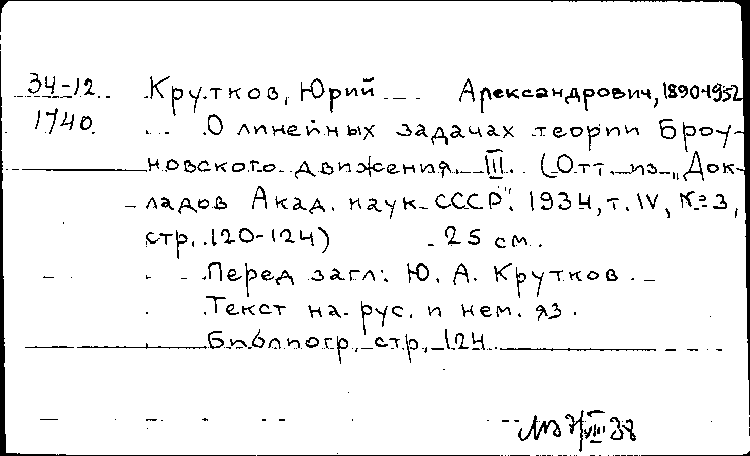 34-12 Крутков, Юрий Александрович, 1890-1952
1740 О линейных задачах теории Броу-
новского движения. III. (Отт. из „Док-
ладов Акад. наук СССР". 1934, т. IV, №3,
стр. 120-124) 25 см.
Перед загл: Ю. А. Крутков
Текст на рус. и нем. яз.
Библиогр. стр. 124
VIII 38